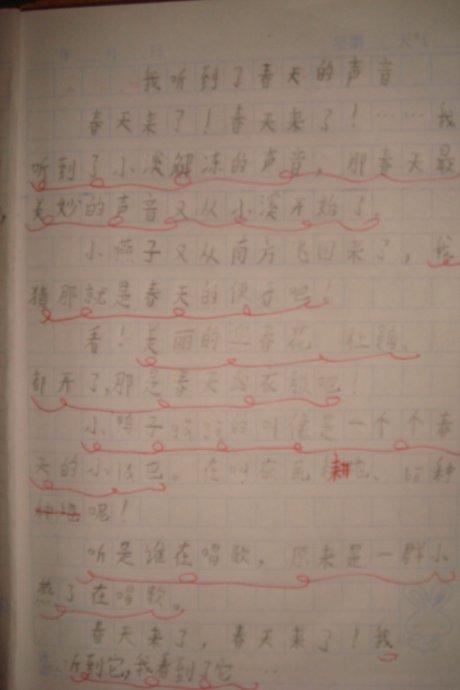 我听到了春天的声音
春天来了!春天来了!……我
听到了小溪解冻的声音,那春天最
美妙的声音又从小溪开始了
小燕子又从南方飞回来了,我
猜那就是春天的使子吧!
看!美丽的迎春花、杜鹃、
都开了,那是春天的衣服吧!
小鸭子的叫像是一个个春
天的小。在叫农民耕地、种
呢!
听是谁在唱歌,原来是一群小
燕子在唱歌。
春天来了,春天来了!我
听到它,我看到了它……